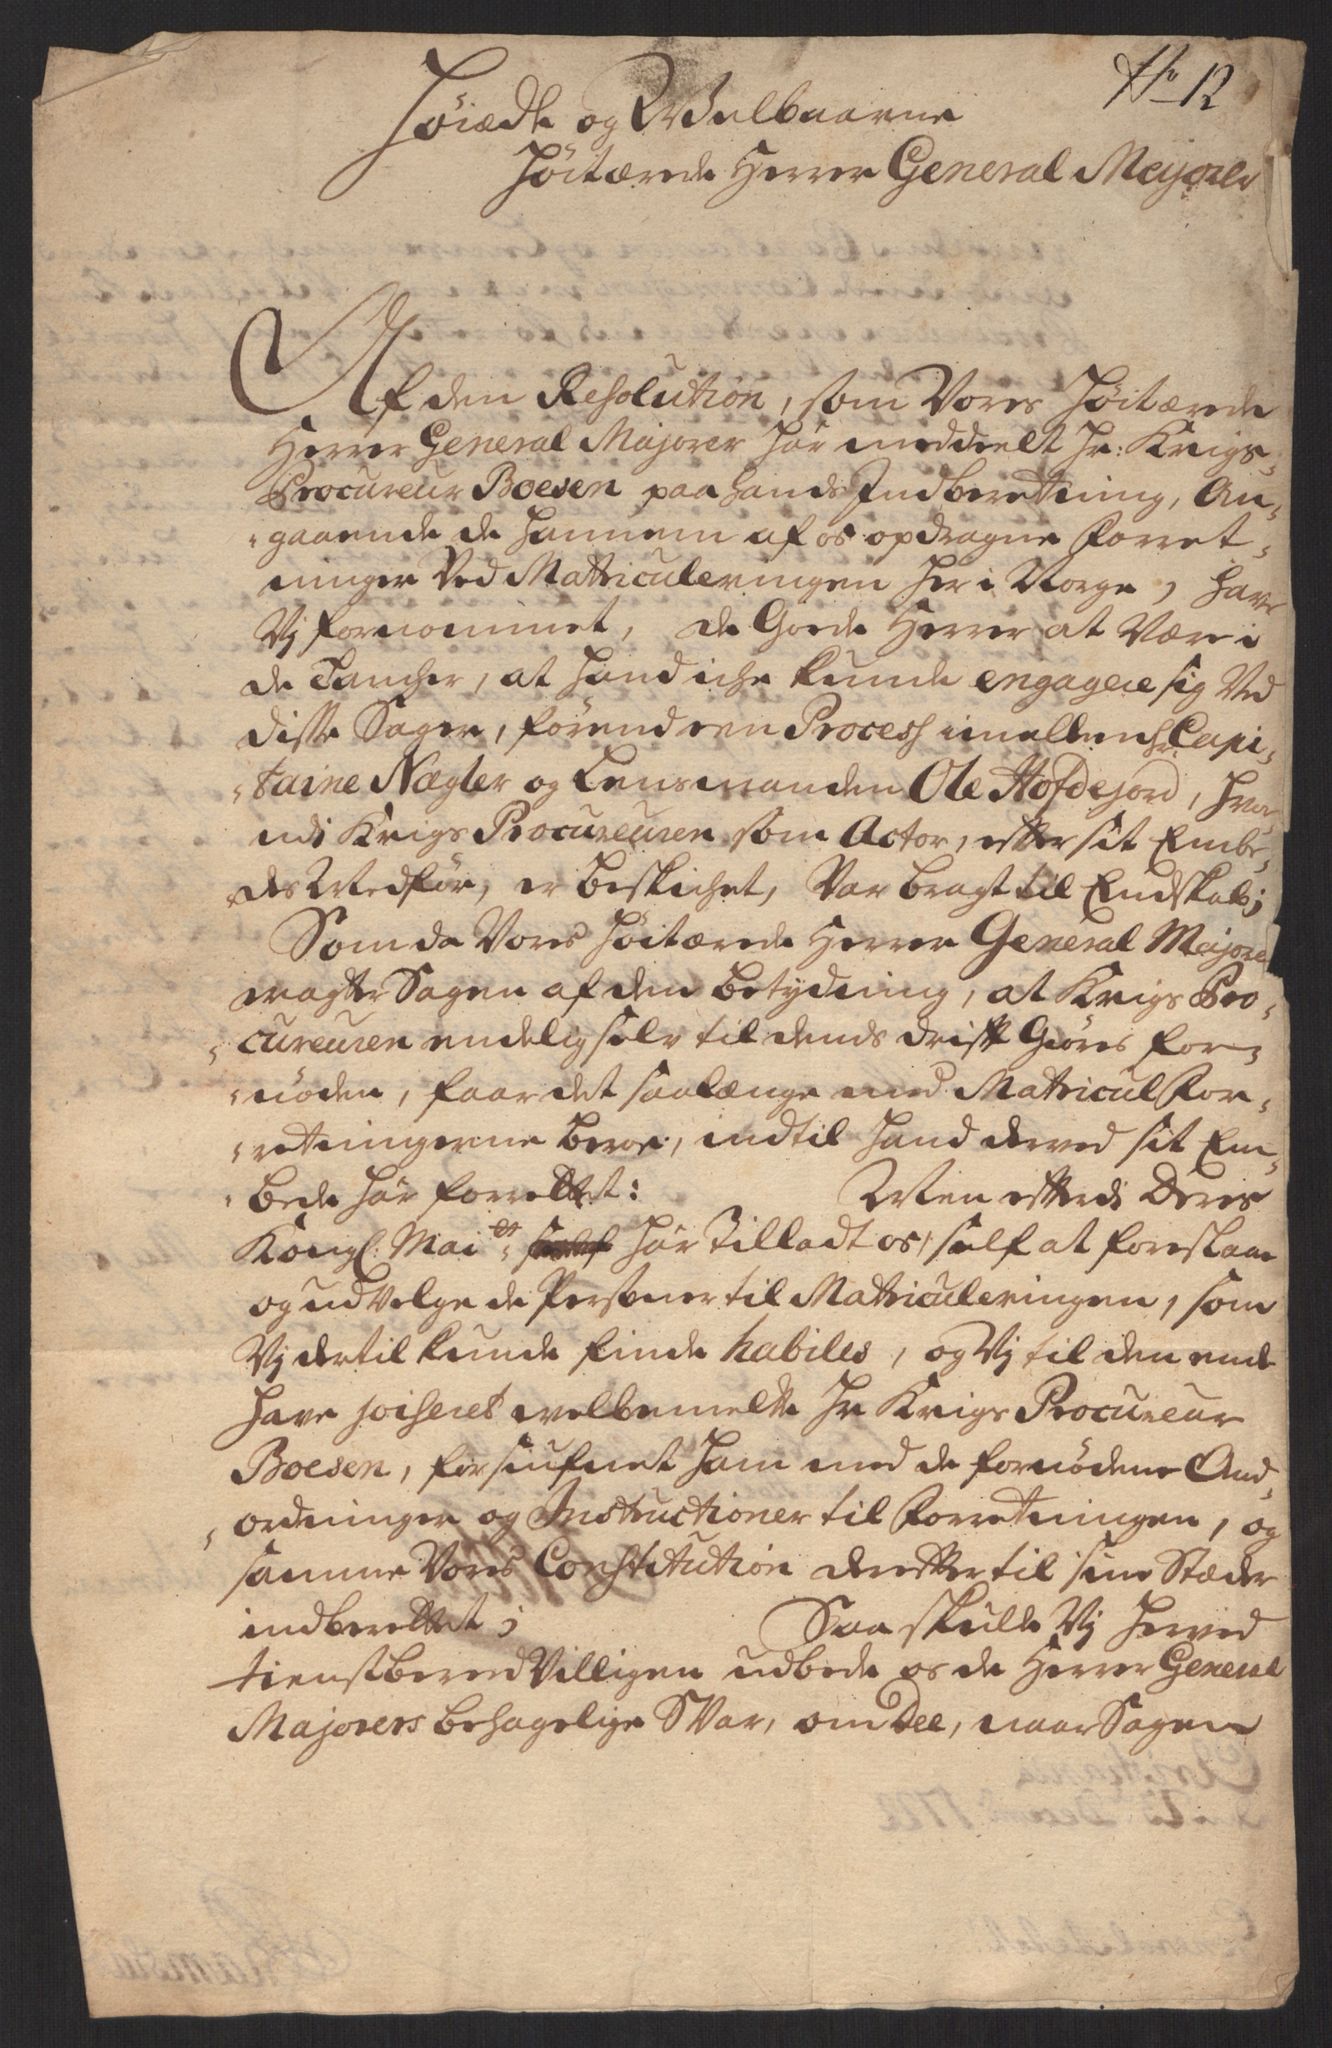 No 12
Höiædle og Welbaarne
Höitærede Herrer General Majorer
Af den Resolution, som Vores Höitærede
Herrer General Majorer har meddeelt Hr: Krigs-
Procureur Boesen paa hands Indberetning, An-
gaaende de hannem af os opdragne Forret-
ninger Ved Matriculeringen her i Norge, have
Vj fornommet, de Goede Herrer at Være i
de Tancher, at hand iche kunde engagere sig Ved
disse Sager, förend een Process imellem hr. Capi-
taine Nægler og Lensmanden Ole Hofdejord, hvor-
udi Krigs Procureuren som Actor, efter sit Embe-
des Medför, er beskichet, Var bragt til Endskab;
Som da Vores Höitærede Herrer General Majorer
eragter Sagen af den betydning, at Krigs Pro-
cureuren endelig selv til dends drift Giöres for-
nöden, faar det saalænge med Matricul For-
retningerne beroe, indtil hand derved sit Em-
bede har forrettet: Men efterdi Deres
Kongl: Mai et har Tilladt os, self at foreslaae
og udvelge de Persohner til Matriculeringen, som
Vj dertil kunde finde habiles, og Vj til den ende
have choiseret velbemelte Hr Krigs Procureur
Boesen, forsiufnet ham med de fornödene And-
ordninger og Instructioner til Forretningen, og
samme Vores Constitution derefter til sine Stæder
indberettet; Saa skulle Vj herved
tienstberedVilligen udbede os de Herrer General
Majorers behagelige SVar, om Dee, naar Sagen